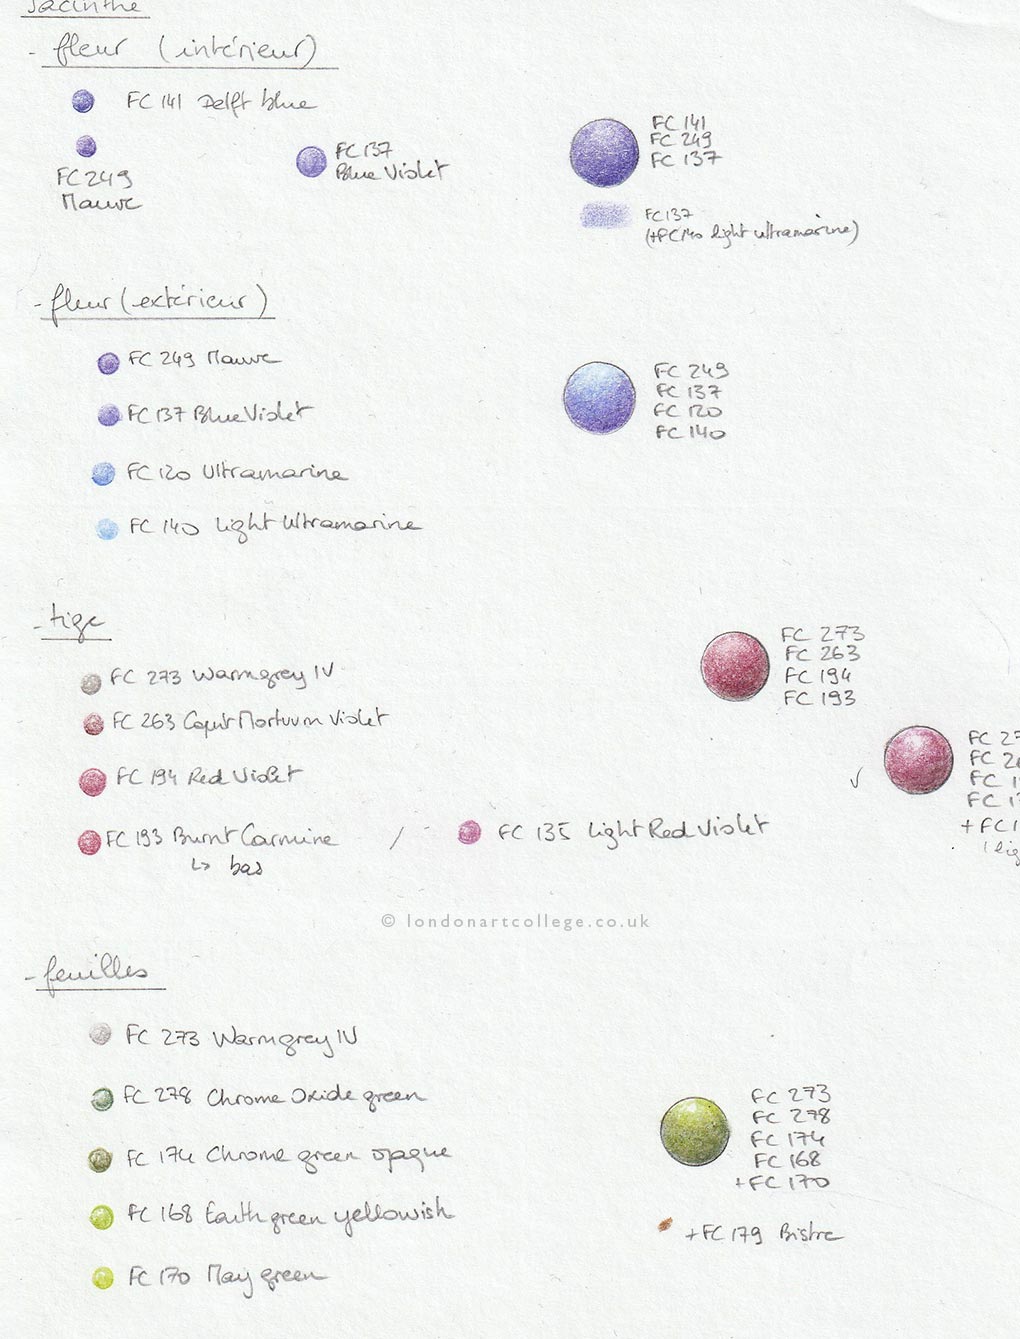 Jacinthe
- fleur (intérieur)
FC 141 Delft blue
FC 249
Mauve
FC 137
Blue Violet
FC 141
FC 249
FC 137
FC 137
(+FC 140 light ultramarine)
- fleur (extérieur)
FC 249 Mauve
FC 137 Blue Violet
FC 120 Ultramarine
FC 140 Light Ultramarine
FC 249
FC 137
FC 120
FC 140
- tige
FC 273 Warmgrey IV
FC 263 Caput Mortuum Violet
FC 194 Red Violet
FC 193 Burnt Carmine
↳ bas
/ - FC 135 Light Red Violet
FC 273
FC 263
FC 194
FC 193
√
FC 27
FC 26
FC 1
FC 1
+ FC 1
© londonartcollege.co.uk
- feuilles
FC 273 Warmgrey IV
FC 278 Chrome Oxide green
FC 174 Chrome green opaque
FC 168 Earth green yellowish
FC 170 May green
FC 273
FC 278
FC 174
FC 168
+ FC 170
+ FC 179 Bistre